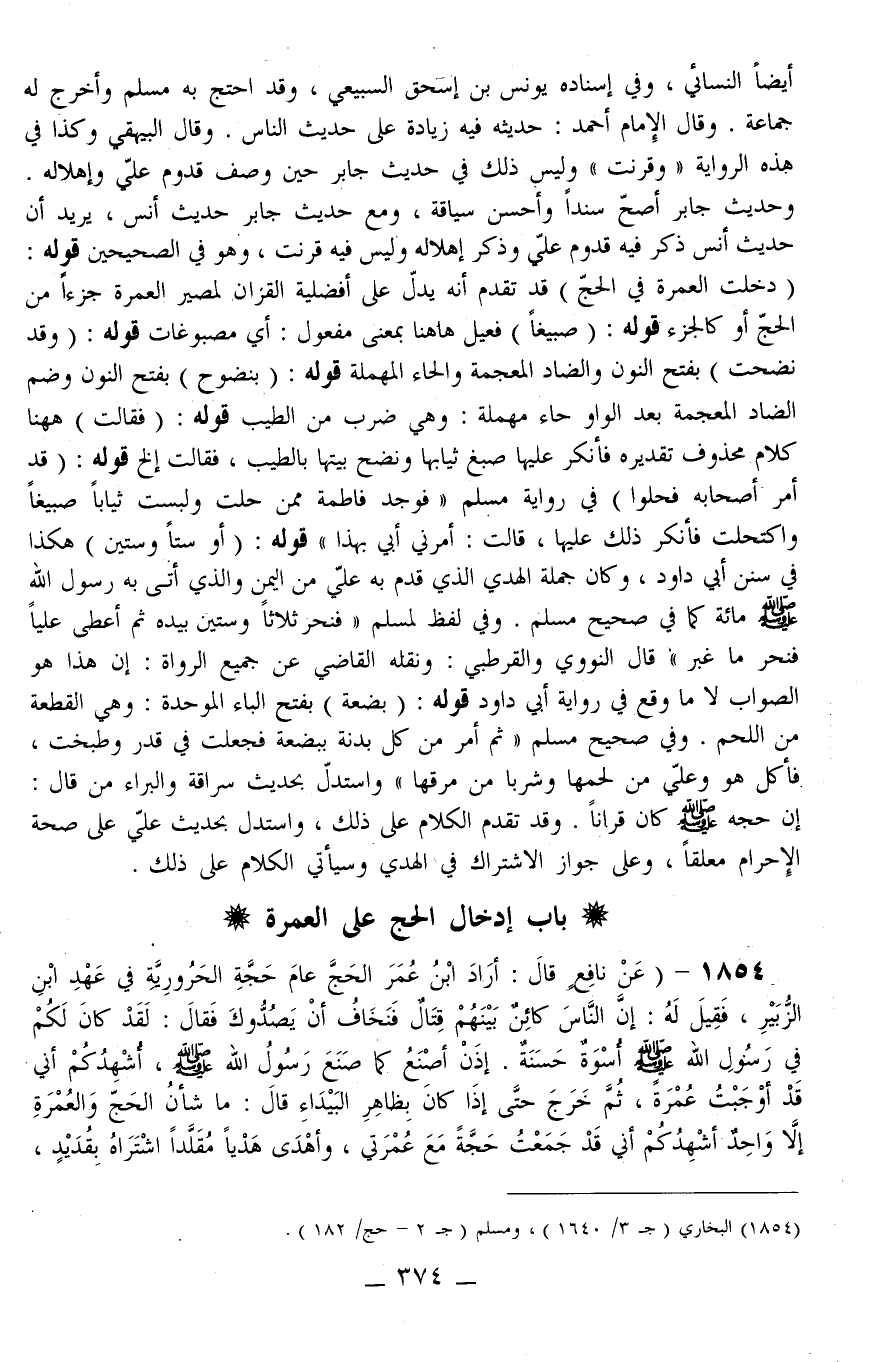 أيضاً النسائي ، وفي إسناده يونس بن إسحق السبيعي ، وقد احتج به مسلم وأخرج له
جماعة . وقال الإمام أحمد : حديثه فيه زيادة على حديث الناس . وقال البيهقي وكذا في
هذه الرواية « وقرنت » وليس ذلك في حديث جابر حين وصف قدوم عليّ وإهلاله .
وحديث جابر أصحّ سنداً وأحسن سياقة ، ومع حديث جابر حديث أنس ، يريد أن
حديث أنس ذكر فيه قدوم عليّ وذكر إهلاله وليس فيه قرنت ، وهو في الصحيحين قوله :
( دخلت العمرة في الحجّ ) قد تقدم أنه يدلّ على أفضلية القران لمصير العمرة جزءاً من
الحجّ أو كالجزء قوله : ( صبيغاً ) فعيل هاهنا بمعنى مفعول : أي مصبوغات قوله : ( وقد
نضحت ) بفتح النون والضاد المعجمة والحاء المهملة قوله : ( بنضوح ) بفتح النون وضم
الضاد المعجمة بعد الواو حاء مهملة : وهي ضرب من الطيب قوله : ( فقالت ) ههنا
كلام محذوف تقديره فأنكر عليها صبغ ثيابها ونضح بيتها بالطيب ، فقالت إلخ قوله : ( قد
أمر أصحابه فحلوا ) في رواية مسلم « فوجد فاطمة ممن حلت ولبست ثياباً صبيغاً
واكتحلت فأنكر ذلك عليها ، قالت : أمرني أبي بهذا » قوله : ( أو ستاً وستين ) هكذا
في سنن أبي داود ، وكان جملة الهدي الذي قدم به عليّ من اليمن والذي أتى به رسول الله
ﷺ مائة كما في صحيح مسلم . وفي لفظ لمسلم « فنحر ثلاثاً وستين بيده ثم أعطى علياً
فنحر ما غبر » قال النووي والقرطبي : ونقله القاضي عن جميع الرواة : إن هذا هو
الصواب لا ما وقع في رواية أبي داود قوله : ( بضعة ) بفتح الباء الموحدة : وهي القطعة
من اللحم . وفي صحيح مسلم « ثم أمر من كل بدنة ببضعة فجعلت في قدر وطبخت ،
فأكل هو وعليّ من لحمها وشربا من مرقها » واستدلّ بحديث سراقة والبراء من قال :
إن حجه ﷺ كان قراناً . وقد تقدم الكلام على ذلك ، واستدل بحديث عليّ على صحة
الإحرام معلقاً ، وعلى جواز الاشتراك في الهدي وسيأتي الكلام على ذلك .
باب إدخال الحج على العمرة
١٨٥٤ - ( عَنْ نافِعٍ قالَ : أرَادَ ابْنُ عُمَرَ الحَجَّ عامَ حَجَّةِ الحَرُورِيَّةِ في عَهْدِ ابْنِ
الزُّبَيْرِ ، فَقِيلَ لَهُ : إنَّ النَّاسَ كائِنٌ بَيْنَهُمْ قِتَالٌ فَنَخَافُ أنْ يَصُدُّوكَ فَقالَ : لَقَدْ كانَ لَكُمْ
في رَسُولِ الله ﷺ أُسْوَةٌ حَسَنَةٌ . إذَنْ أصْنَعُ كما صَنَعَ رَسُولُ الله ﷺ ، أُشْهِدُكُمْ أني
قَدْ أوْجَبْتُ عُمْرَةً ، ثُمَّ خَرَجَ حتَّى إذَا كانَ بِظاهِرِ البَيْدَاءِ قالَ : ما شأنُ الحَجّ وَالعُمْرَةِ
إلَّا وَاحِدٌ أشْهِدُكُمْ أني قَدْ جَمَعْتُ حَجَّةً مَعَ عُمْرَتي ، وأهْدَى هَدْياً مُقَلَّداً اشْتَرَاهُ بِقُدَيْدٍ ،
(١٨٥٤) البخاري ( جـ ٣/ ١٦٤٠ ) ، ومسلم ( جـ ٢ - حج/ ١٨٢ ) .
ــ ٣٧٤ ــ